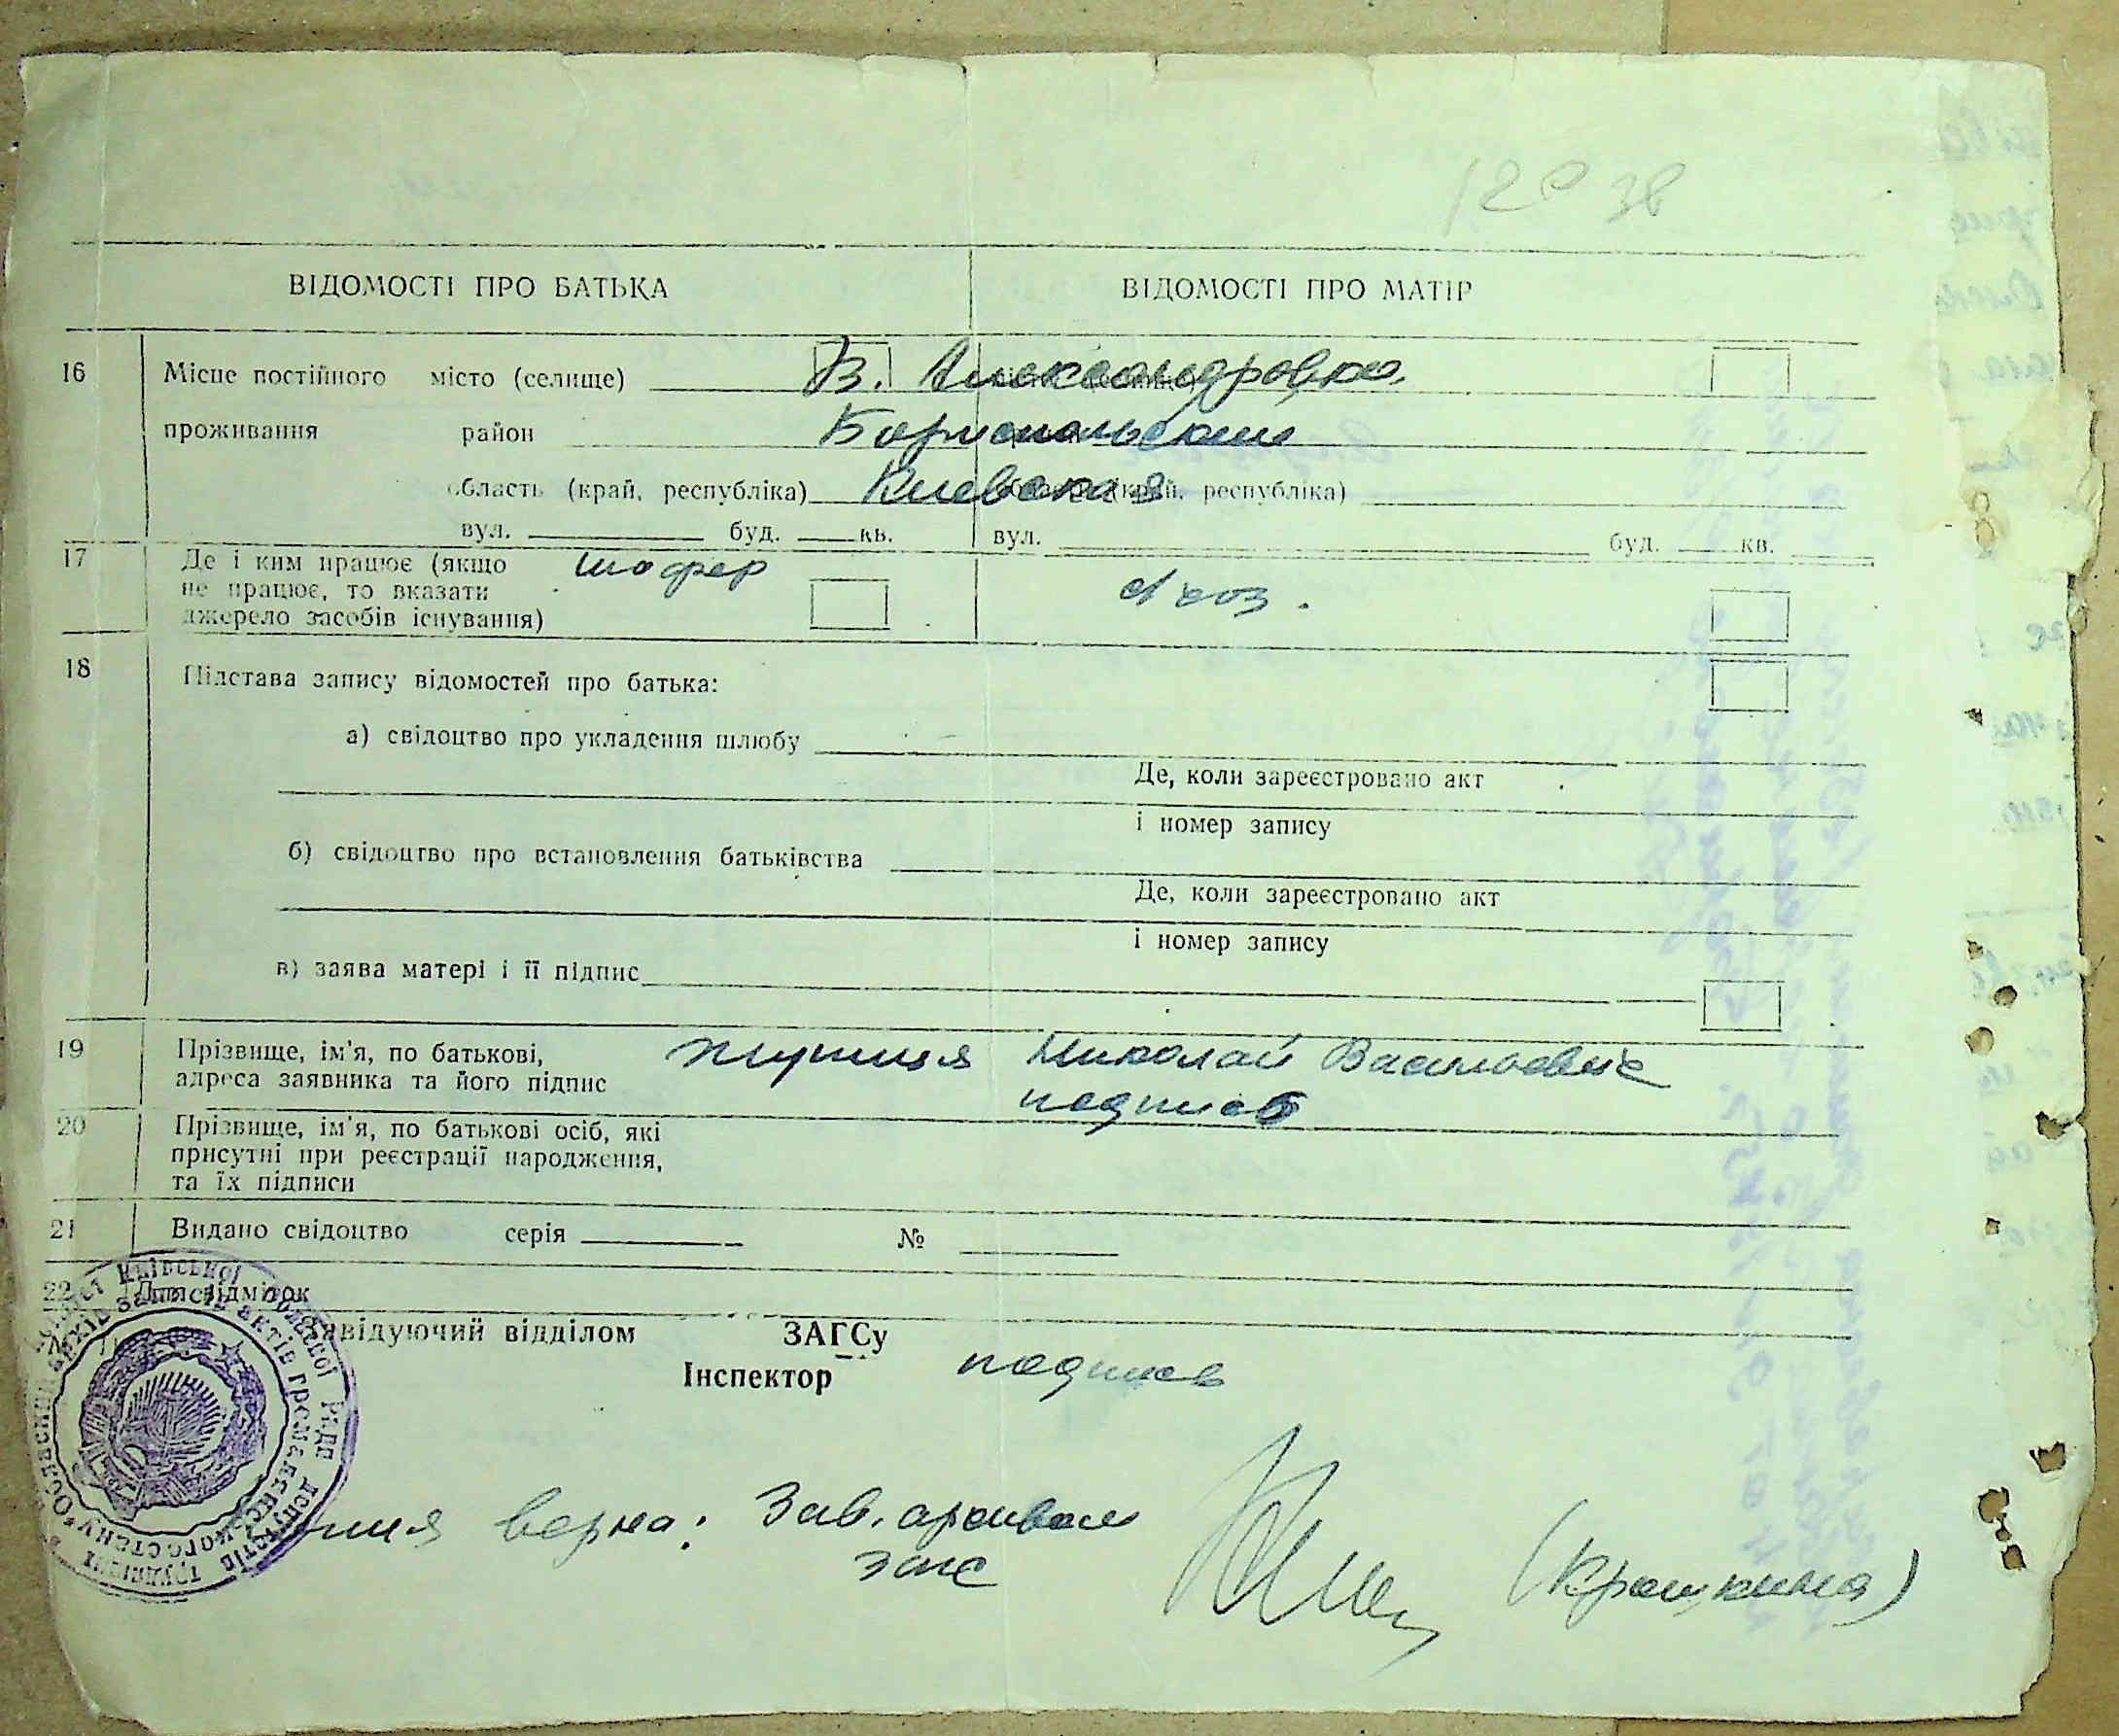 ВІДОМОСТІ ПРО БАТЬКА ВІДОМОСТІ ПРО МАТІР
16 Місце постійного місто (селище) В. Александровка
проживання район Бориспольский
область (край, республіка) Киевская (край, республіка)
вул. буд. кв. вул. буд. кв.
17 Де і ким працює (якщо шофер
не працює, то вказати
джерело засобів існування)
18 Підстава запису відомостей про батька:
а) свідоцтво про укладення шлюбу
Де, коли зареєстровано акт
і номер запису
б) свідоцтво про встановлення батьківства
Де, коли зареєстровано акт
і номер запису
в) заява матері і її підпис
19 Прізвище, ім'я, по батькові, Николай Васильевич
адреса заявника та його підпис подпись
20 Прізвище, ім'я, по батькові осіб, які
присутні при реєстрації народження,
та їх підписи
21 Видано свідоцтво серія №
22 Для відміток
Завідуючий відділом ЗАГСу
Інспектор подпись
верна: Зав. архивом
загс (Крашкина)